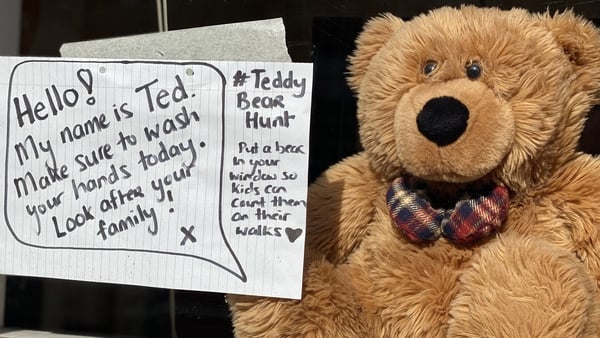 Hello!
My name is Ted.
Make sure to wash
your hands today.
Look after your
family!
x
# Teddy
Bear
Hunt
Put a bear
in your
window so
kids can
count them
on their
walks ♥